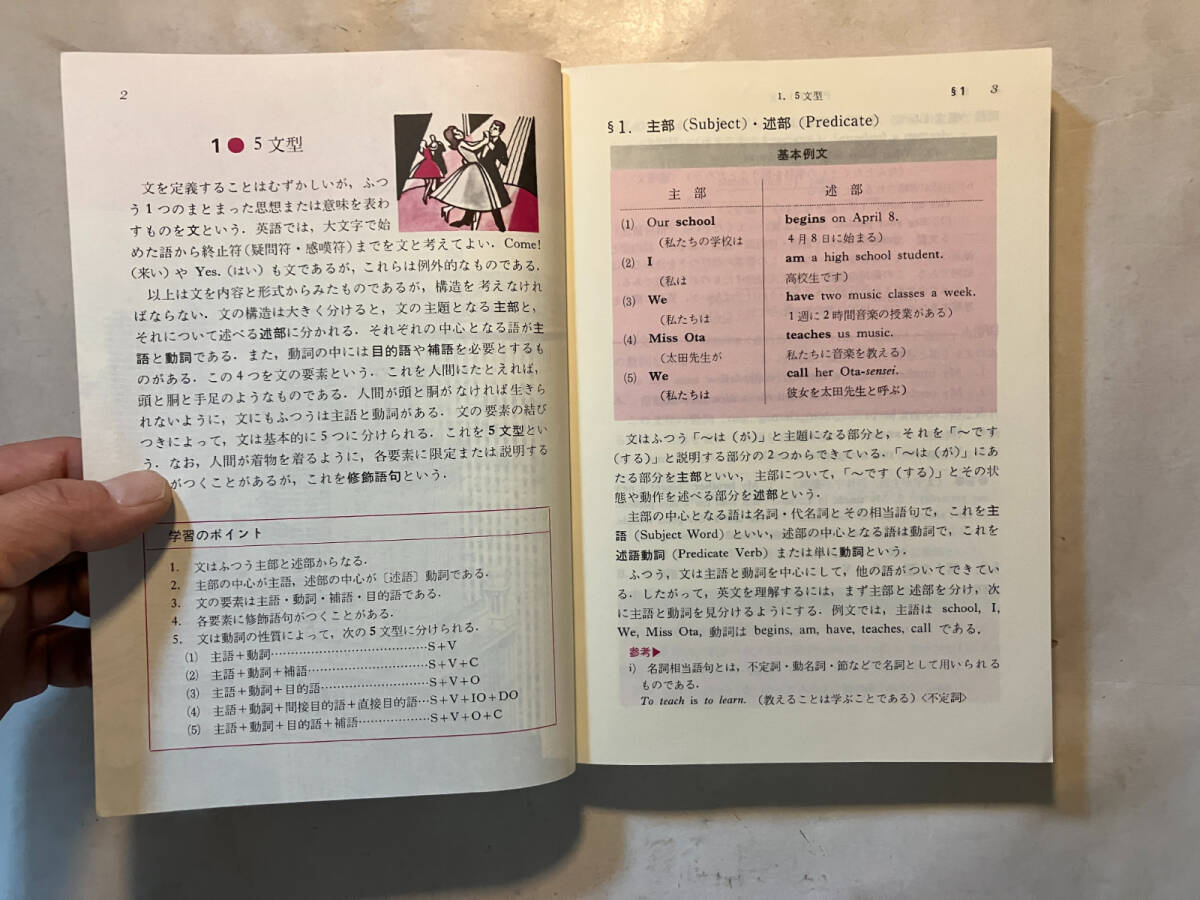 2
1 ● 5文型
文を定義することはむずかしいが，ふつ
う1つのまとまった思想または意味を表わ
すものを文という．英語では，大文字で始
めた語から終止符（疑問符・感嘆符）までを文と考えてよい．Come!
（来い）や Yes.（はい）も文であるが，これらは例外的なものである．
以上は文を内容と形式からみたものであるが，構造を考えなけれ
ばならない．文の構造は大きく分けると，文の主題となる主部と，
それについて述べる述部に分かれる．それぞれの中心となる語が主
語と動詞である．また，動詞の中には目的語や補語を必要とするも
のがある．この4つを文の要素という．これを人間にたとえれば，
頭と胴と手足のようなものである．人間が頭と胴がなければ生きら
れないように，文にもふつうは主語と動詞がある．文の要素の結び
つきによって，文は基本的に5つに分けられる．これを5文型とい
う．なお，人間が着物を着るように，各要素に限定または説明する
がつくことがあるが，これを修飾語句という．
学習のポイント
1. 文はふつう主部と述部からなる．
2. 主部の中心が主語，述部の中心が〔述語〕動詞である．
3. 文の要素は主語・動詞・補語・目的語である．
4. 各要素に修飾語句がつくことがある．
5. 文は動詞の性質によって，次の5文型に分けられる．
(1) 主語＋動詞……………………………………S＋V
(2) 主語＋動詞＋補語……………………………S＋V＋C
(3) 主語＋動詞＋目的語…………………………S＋V＋O
(4) 主語＋動詞＋間接目的語＋直接目的語…S＋V＋IO＋DO
(5) 主語＋動詞＋目的語＋補語………………S＋V＋O＋C
1. 5文型 §1 3
§1. 主部 (Subject)・述部 (Predicate)
基本例文
主 部 述 部
(1) Our school begins on April 8.
（私たちの学校は 4月8日に始まる）
(2) I am a high school student.
（私は 高校生です）
(3) We have two music classes a week.
（私たちは 1週に2時間音楽の授業がある）
(4) Miss Ota teaches us music.
（太田先生が 私たちに音楽を教える）
(5) We call her Ota-sensei.
（私たちは 彼女を太田先生と呼ぶ）
文はふつう「〜は（が）」と主題になる部分と，それを「〜です
（する）」と説明する部分の2つからできている．「〜は（が）」にあ
たる部分を主部といい，主部について，「〜です（する）」とその状
態や動作を述べる部分を述部という．
主部の中心となる語は名詞・代名詞とその相当語句で，これを主
語 (Subject Word) といい，述部の中心となる語は動詞で，これを
述語動詞 (Predicate Verb) または単に動詞という．
ふつう，文は主語と動詞を中心にして，他の語がついてできてい
る．したがって，英文を理解するには，まず主部と述部を分け，次
に主語と動詞を見分けるようにする．例文では，主語は school, I,
We, Miss Ota, 動詞は begins, am, have, teaches, call である．
参考▶
i) 名詞相当語句とは，不定詞・動名詞・節などで名詞として用いられる
ものである．
To teach is to learn. （教えることは学ぶことである）〈不定詞〉